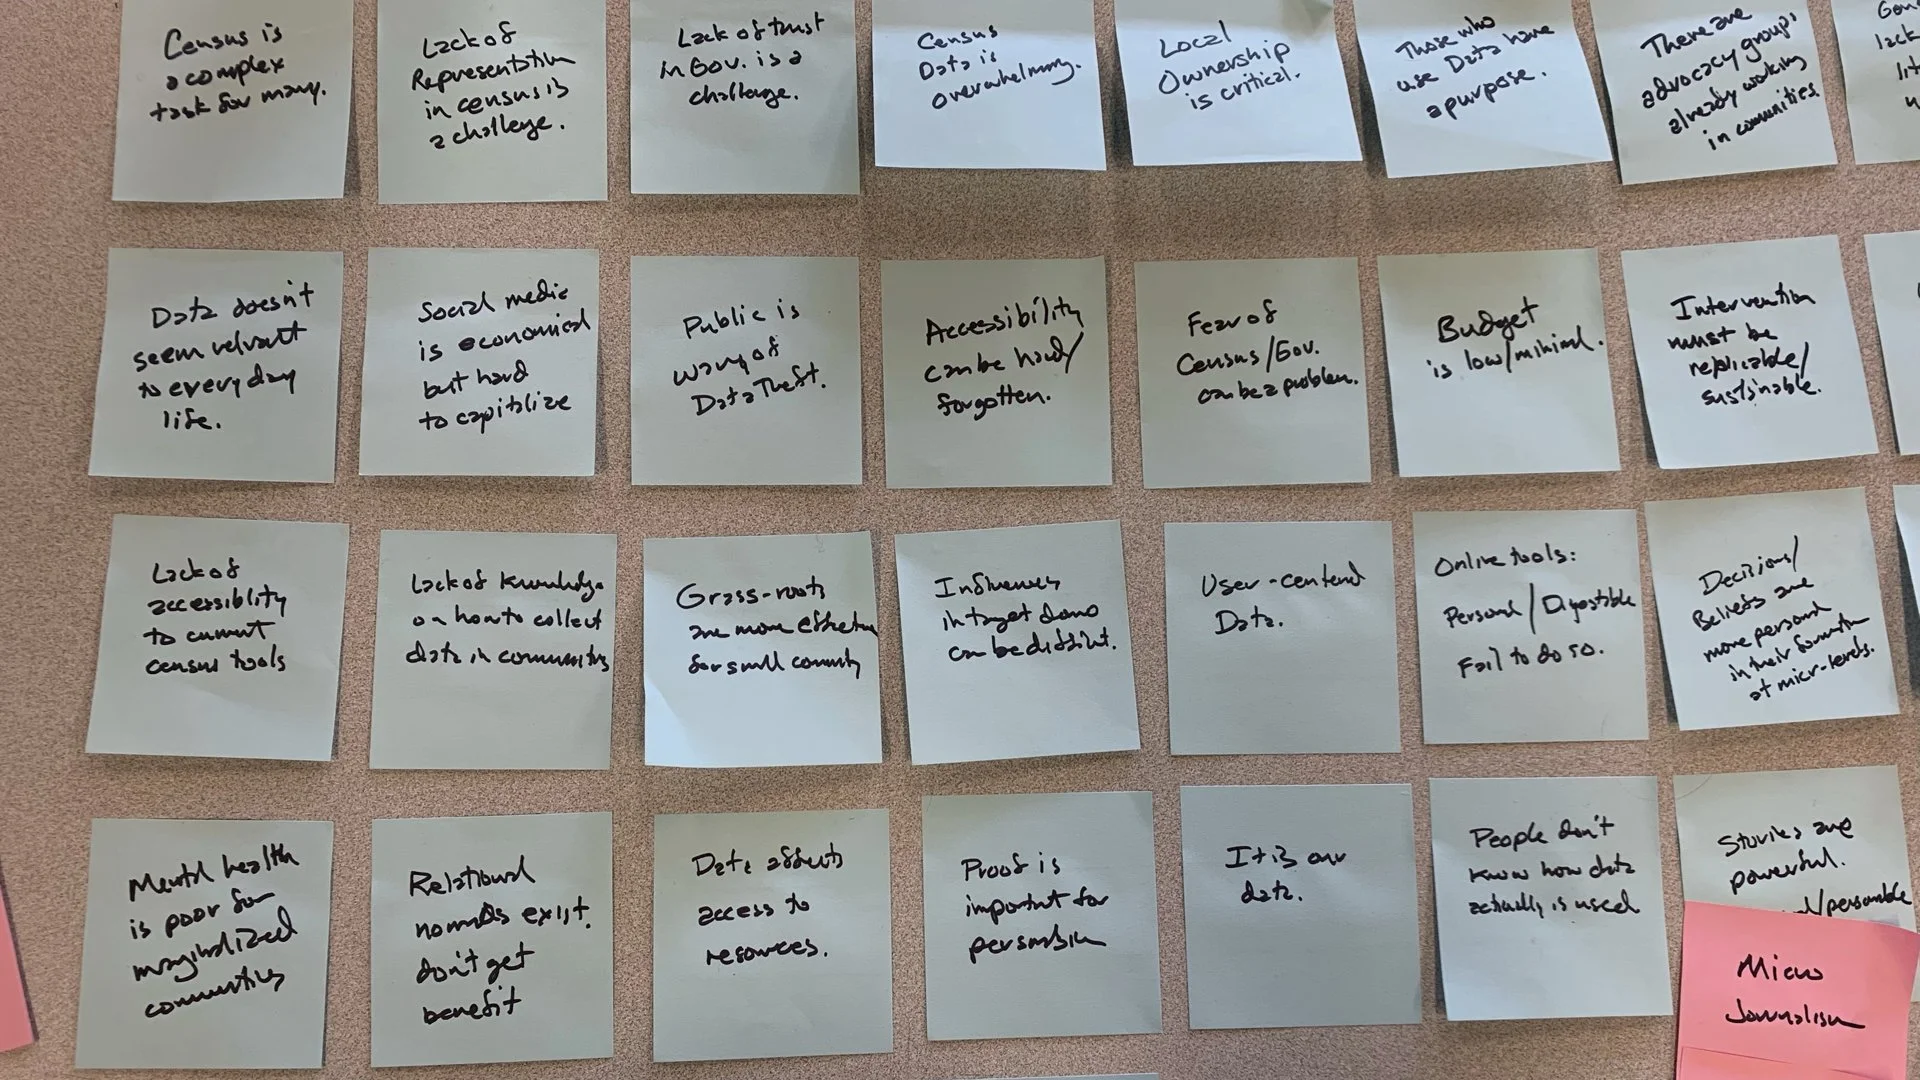 Census is
a complex
task for many.
Lack of
Representation
in census is
a challenge.
Lack of trust
in Gov. is a
challenge.
Census
Data is
overwhelming.
Local
Ownership
is critical.
Those who
use Data have
a purpose.
There are
advocacy groups
already working
in comunities.
lack
Data doesn't
seem relvant
to everyday
life.
Social media
is economical
but hard
to capitalize
Public is
wary of
Data Theft.
Accessibility
can be hard/
forgotten.
Fear of
Census/Gov.
can be a problem.
Budget
is low/minimal.
Intervention
must be
replicable/
sustainable.
Lack of
accessiblity
to current
census tools
Lack of knowledge
on how to collect
data in communities
Grass-roots
are more effective
for small comunity
Influences
in target demo
can be distinct.
User-centered
Data.
Online tools:
Personal/Digestable
Fail to do so.
Decisions/
Beliefs are
more personal
in their formation
at micr-levels.
Mental health
is poor for
marginalized
communities
Relational
nomads exist.
don't get
benefit
Data affects
access to
resources.
Proof is
important for
persuasion
It is our
data.
People don't
know how data
actually is used
Stories are
powerful.
/personable
Micro
Journalism